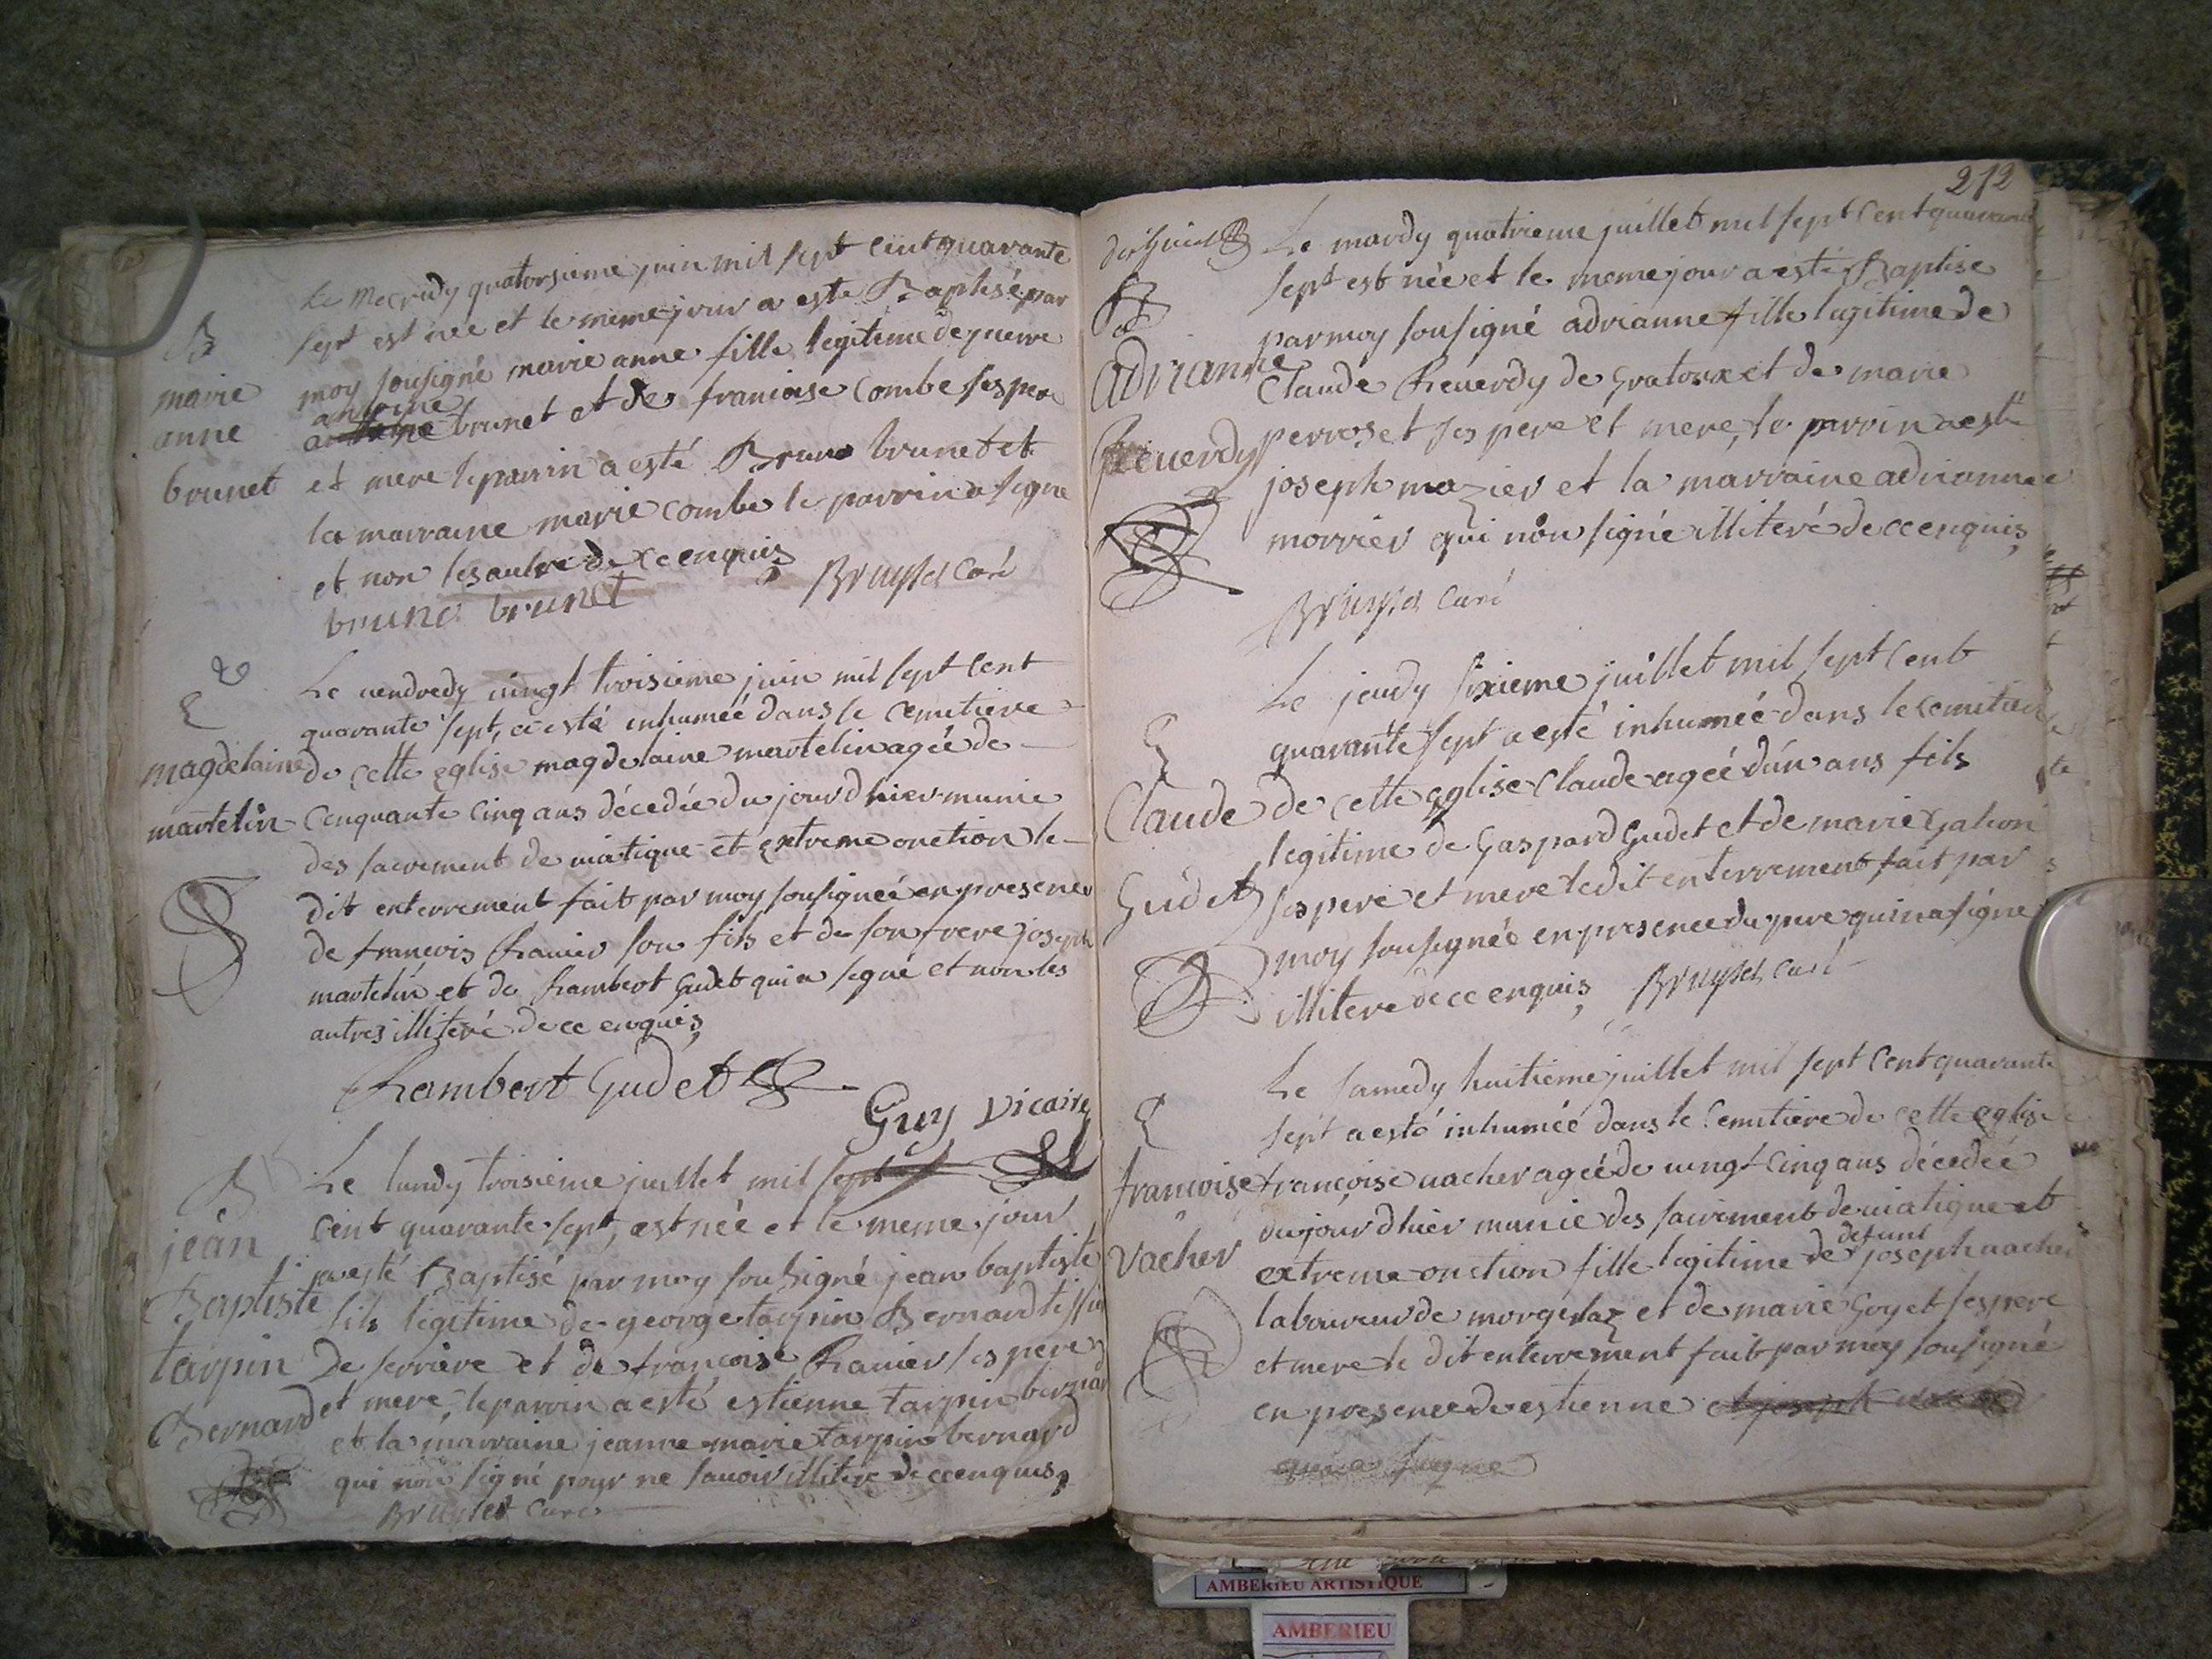 B
marie
anne
brunet
Le Mecredy quatorsieme juin mil sept cent quarante
sept est nee et le meme jour a este Baptisé par
moy sousigné marie anne fille legitime de pierre
antoine
brunet et de francoise Combe ses pere
et mere le parrin a esté Bruno brunet et
la marraine marie combe le parrin a signe
et non les autre de ce enquis
bruno brunet
Bruyset Curé
E
magdelaine
martelin
Le vendredy vingt troisieme juin mil sept cent
quarante sept, a esté inhumeé dans le Cemetiere
de cette eglise magdelaine martelin ageé de
cenquante cinq ans décedée du jour d hier munie
des sacrement de viatique et extreme onction le
dit enterrement fait par moy sousigneé en presence
de francois Ravier son fils et de son frere joseph
martelin et de Rambert Gudet qui a signé et non les
autres illiteré de ce enquis
Rambert Gudet
Guy vicaire
B
jean
Baptiste
tarpin
Bernard
Le lundy troisieme juillet mil sept
Cent quarante sept, est neé et le meme jour
a esté Baptisé par moy sousigné jean baptiste
fils legitime de george tarpin Bernard tissier
De serriere et de françoise Ravier ses pere
et mere, le parrin a esté estienne tarpin bernard
et la marraine jeanne marie tarpin bernard
qui non signé pour ne sauoir illitere de ce enquis
Bruyset Curé
212
B
adrianne
Reuerdy
Le mardy quatrieme juillet mil sept Cent quarante
sept est neé et le meme jour a esté Baptise
par moy sousigné adrianne fille legitime de
Claude Reuerdy de Gratoux et de marie
perroset ses pere et mere, le parrin a esté
joseph mazier et la marraine adrianne
morrier qui non signé illiteré de ce enquis
Bruyset Curé
E
Claude
Gudet
Le jeudy sixieme juillet mil sept Cent
quarante sept a esté inhumeé dans le cemitiere
de cette eglise Claude ageé d'un ans fils
legitime de Gaspard Gudet et de marie
ses pere et mere le dit enterrement fait par
moy sousigneé en presence du pere qui na signé
illitere de ce enquis Bruyset Curé
E
francoise
vacher
Le samedy huitieme juillet mil sept Cent quarante
sept a esté inhumeé dans le Cemitiere de cette eglise
françoise uacher ageé de uingt Cinq ans décedeé
du jour d hier munie des sacrement de uiatique et
defunt
extreme onction fille legitime de joseph uacher
laboureur de morgelaz et de marie Goyet ses pere
et mere le dit enterrement fait par moy sousigné
en presence de estienne et joseph
qui a signe
AMBERIEU ARTISTIQUE
AMBERIEU